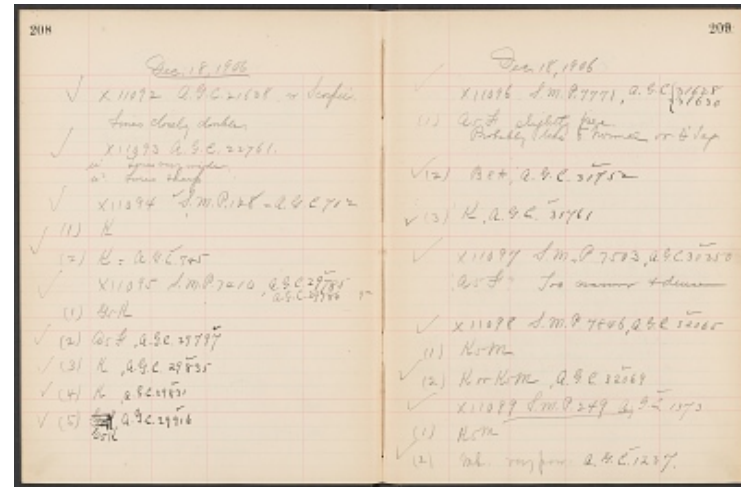 208
Dec. 18, 1906
X 11092 A.G.C. 21628 Scorpii
lines closely double
X 11093 A.G.C. 22761.
lines very wide
lines sharp
X 11094 S.M.P. 128 = A.G.C. 712
(1) K
(2) K = A.G.C. 745
X 11095 S.M.P. 7210, A.G.C. 29785
A.G.C. 29786
(1) G5K
(2) A5F, A.G.C. 29797
(3) K, A.G.C. 29835
(4) K, A.G.C. 29831
(5) A.G.C. 29916
G5K
209
Dec. 18, 1906
X 11096 S.M.P. 7771, A.G.C. {31628
31630
(1) A5F slightly
Probably
(2) B8A, A.G.C. 31752
(3) K, A.G.C. 31761
X 11097 S.M.P. 7503, A.G.C. 30250
A5F Too narrow + dense
X 11098 S.M.P. 7846, A.G.C. 32065
(1) K5M
(2) K or K5M, A.G.C. 32069
X 11099 S.M.P. 249 A.G.C. 1373
(1) K5M
(2) Mb. A.G.C. 1237.